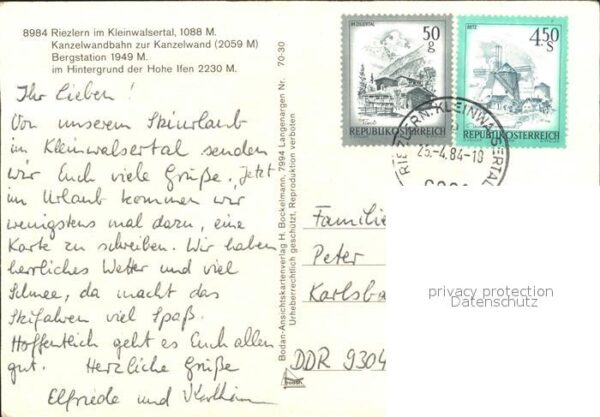 8984 Riezlern im Kleinwalsertal, 1088 M.
Kanzelwandbahn zur Kanzelwand (2059 M)
Bergstation 1949 M.
im Hintergrund der Hohe Ifen 2230 M.
Ihr Lieben!
Von unserem Skiurlaub
im Kleinwalsertal senden
wir Euch viele Grüße. Jetzt
im Urlaub kommen wir
wenigstens mal dazu, eine
Karte zu schreiben. Wir haben
herrliches Wetter und viel
Schnee, da macht das
Skifahren viel Spaß.
Hoffentlich geht es Euch allen
gut. Herzliche Grüße
Elfriede und
Bodan-Ansichtskartenverlag H. Bockelmann, 7994 Langenargen Nr. 70-30
Urheberrechtlich geschützt, Reproduktion verboten
50
g
REPUBLIK ÖSTERREICH
RETZ
4.50
S
REPUBLIK ÖSTERREICH
RIEZLERN, KLEINWALSERTAL
25.-4.84-10
Familie
Peter
Karlsba
DDR 9304
privacy protection
Datenschutz